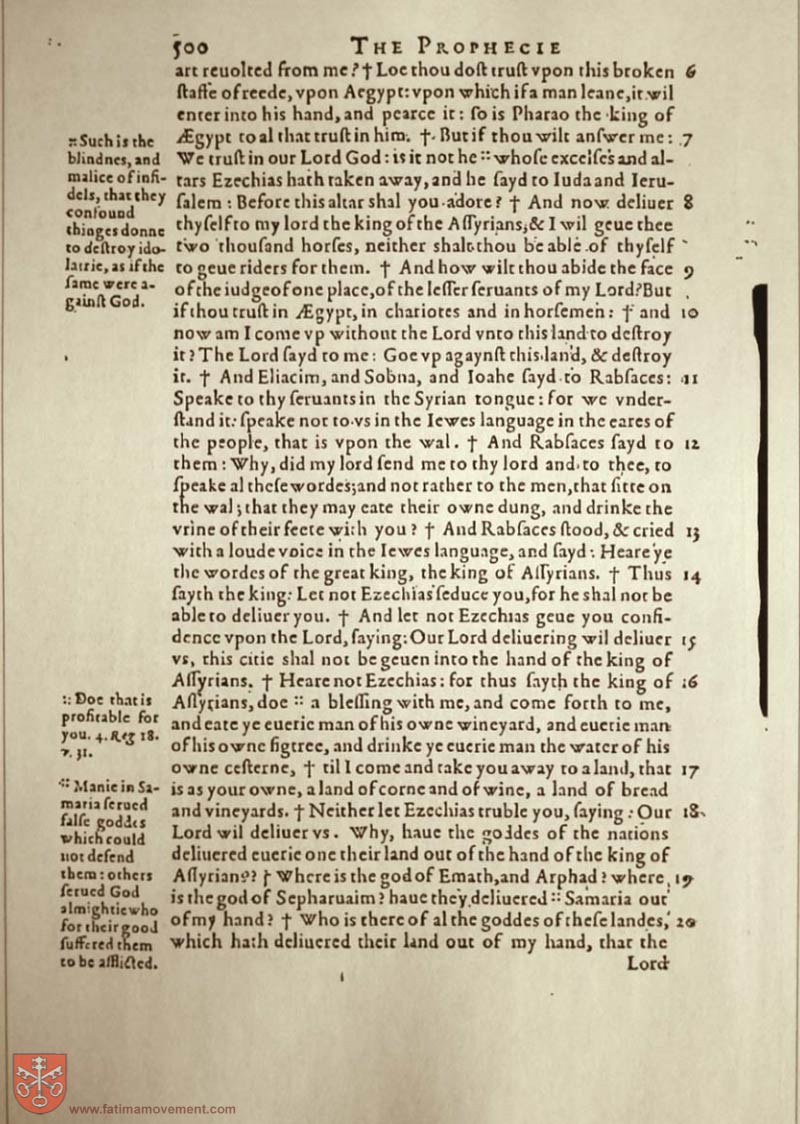 500 THE PROPHECIE
art reuolted from me? † Loe thou doſt truſt vpon this broken 6
ſtaffe of reede, vpon Aegypt: vpon which if a man leane, it wil
enter into his hand, and pearce it: ſo is Pharao the king of
Ægypt to al that truſt in him. † But if thou wilt anſwer me: 7
We truſt in our Lord God: is it not he :: whoſe excelſes and al-
tars Ezechias hath taken away, and he ſayd to Iuda and Ieru-
ſalem: Before this altar shal you adore? † And now deliuer 8
thyſelf to my lord the king of the Aſſyrians, & I wil geue thee
two thouſand horſes, neither shalt thou be able of thyſelf
to geue riders for them. † And how wilt thou abide the face 9
of the iudge of one place, of the leſſer ſeruants of my Lord? But
if thou truſt in Ægypt, in chariotes and in horſemen: † and 10
now am I come vp without the Lord vnto this land to deſtroy
it? The Lord ſayd to me: Goe vp agaynſt this land, & deſtroy
it. † And Eliacim, and Sobna, and Ioahe ſayd to Rabſaces: 11
Speake to thy ſeruants in the Syrian tongue: for we vnder-
ſtand it: ſpeake not to vs in the Iewes language in the eares of
the people, that is vpon the wal. † And Rabſaces ſayd to 12
them: Why, did my lord ſend me to thy lord and to thee, to
ſpeake al theſe wordes; and not rather to the men, that ſitte on
the wal; that they may eate their owne dung, and drinke the
vrine of their feete with you? † And Rabſaces ſtood, & cried 13
with a loude voice in the Iewes language, and ſayd: Heare ye
the wordes of the great king, the king of Aſſyrians. † Thus 14
ſayth the king: Let not Ezechias ſeduce you, for he shal not be
able to deliuer you. † And let not Ezechias geue you confi-
dence vpon the Lord, ſaying: Our Lord deliuering wil deliuer 15
vs, this citie shal not be geuen into the hand of the king of
Aſſyrians. † Heare not Ezechias: for thus ſayth the king of 16
Aſſyrians, doe :: a bleſſing with me, and come forth to me,
and eate ye euerie man of his owne vineyard, and euerie man
of his owne figtree, and drinke ye euerie man the water of his
owne ceſterne, † til I come and take you away to a land, that 17
is as your owne, a land of corne and of wine, a land of bread
and vineyards. † Neither let Ezechias truble you, ſaying: Our 18
Lord wil deliuer vs. Why, haue the goddes of the nations
deliuered euerie one their land out of the hand of the king of
Aſſyrians? † Where is the god of Emath, and Arphad? where 19
is the god of Sepharuaim? haue they deliuered :: Samaria out
of my hand? † Who is there of al the goddes of theſe landes, 20
which hath deliuered their land out of my hand, that the
Lord
:: Such is the
blindnes, and
malice of infi-
dels, that they
confound
thinges donne
to deſtroy ido-
latrie, as if the
ſame were a-
gainſt God.
:: Doe that is
profitable for
you. 4. Reg 18.
v. 31.
:: Manie in Sa-
maria ſerued
falſe goddes
which could
not defend
them: others
ſerued God
almightie who
for their good
ſuffered them
to be afflicted.
www.fatimamovement.com